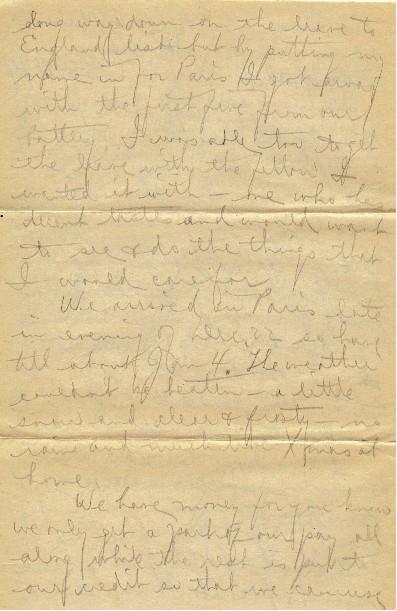 long way down on the leave to
England list but by putting my
name in for Paris I got away
with the first five from our
battery. I was able too to get
the leave with the fellow I
wanted it with - one who has
decent tastes and would want
to see & do the things that
I would care for.
We arrived in Paris late
in evening of Dec. 22 so have
till about Jan 4. The weather
couldn't be beaten - a little
snow and clear & frosty - no
rain and much like Xmas at
home.
We have money for you know
we only get a part of our pay all
along while the rest is put to
our credit so that we can use